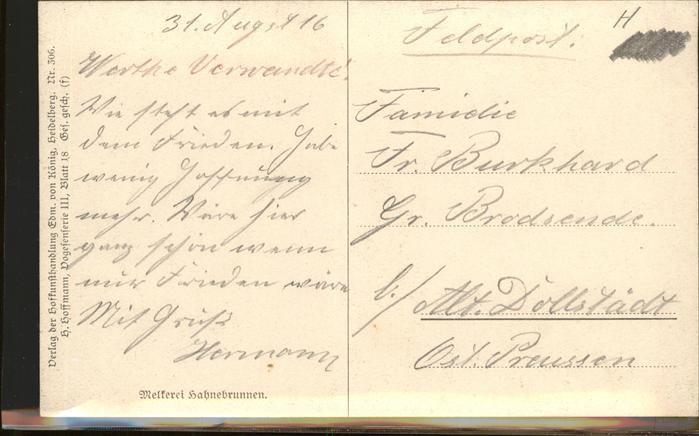 31. August 16
Werthe Verwandte!
Wie steht es mit
dem Frieden. Habe
wenig Hoffnung
mehr. Wäre hier
ganz schön wenn
nur Frieden wäre
Mit Gruß
Hermann
Melkerei Hahnebrunnen.
Verlag der Hofkunsthandlung Edm. von König, Heidelberg. Nr. 306.
H. Hoffmann, Vogesenserie III, Blatt 18 Ges. gesch. (f)
Feldpost.
H
Famidie
Fr. Burkhard
Gr. Brodsende.
b./ Alt. Dollstädt
Ost. Preussen